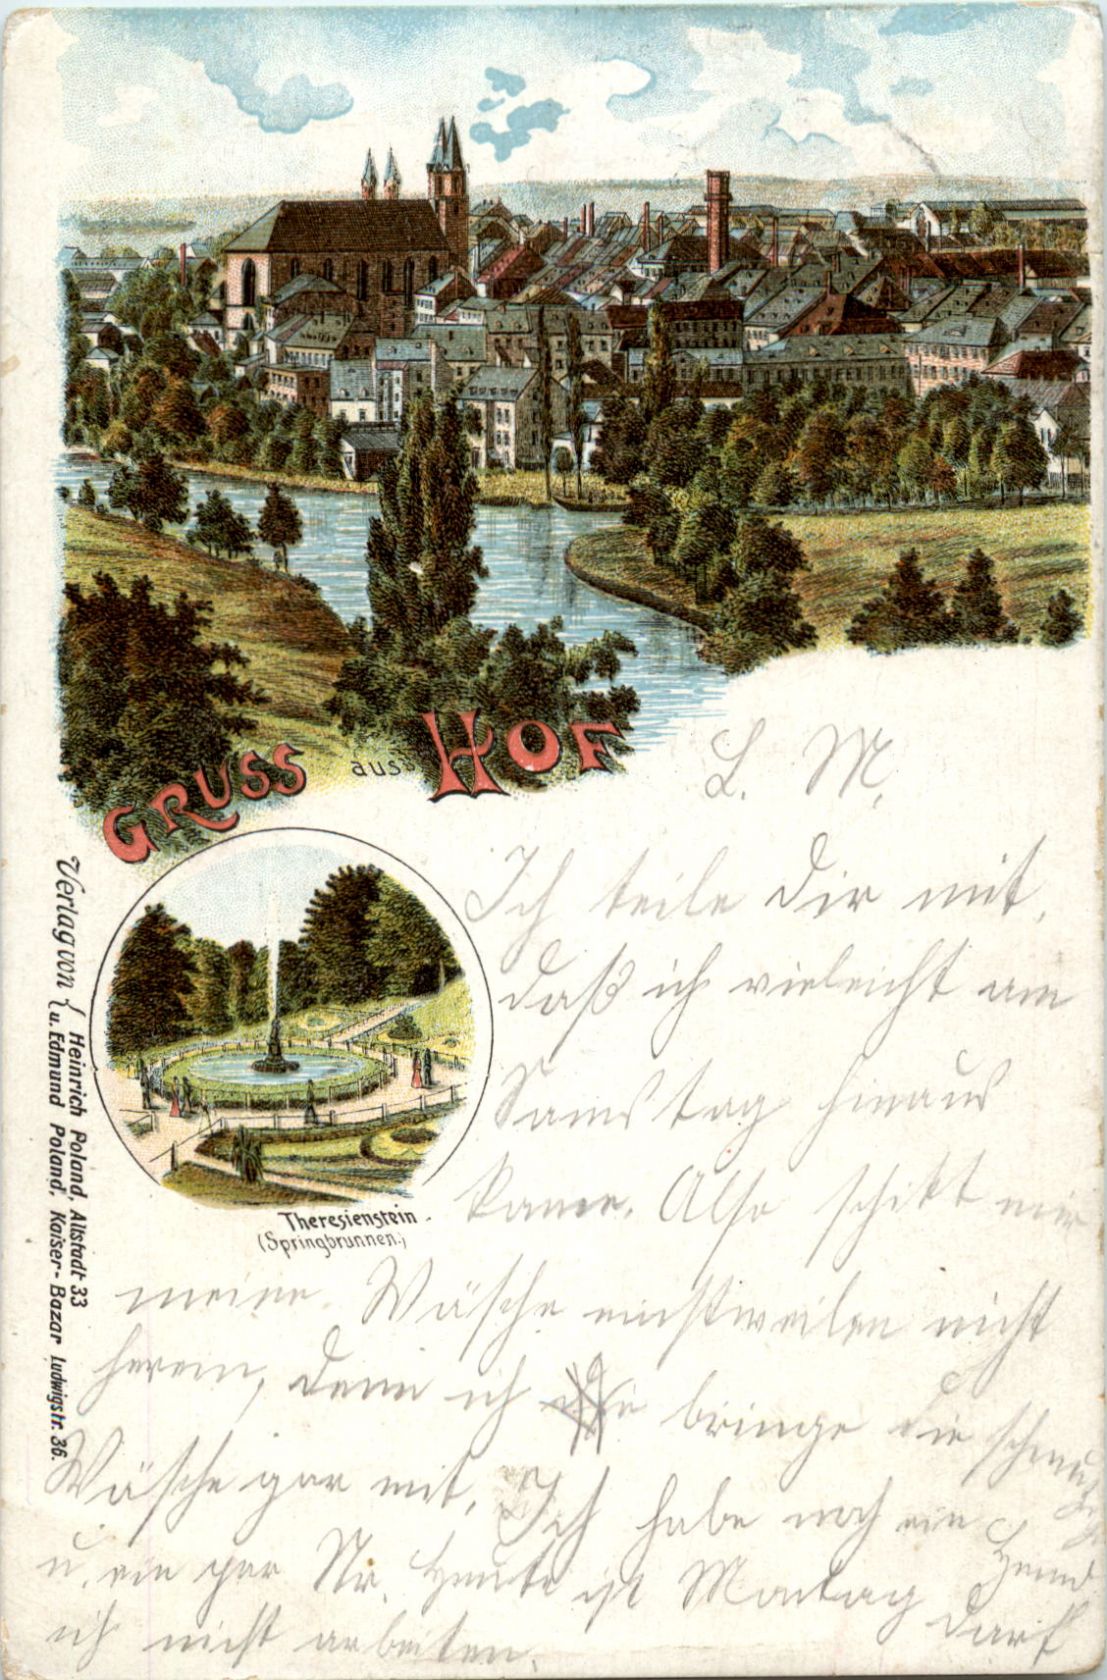 GRUSS aus HOF
L. M.
Ich teile Dir mit,
daß ich vieleicht am
Samstag hinaus
kame. Also schikt mir
meine Wäsche einstweilen nicht
herein, denn ich bringe die schmutzige
Wäsche gar mit. Ich habe noch ein Hemd
u. ein par Heute ist Montag darf
ich nicht arbeiten.
Theresienstein.
(Springbrunnen.)
Verlag von { Heinrich Poland, Altstadt 33
u. Edmund Poland, Kaiser-Bazar Ludwigstr. 36.